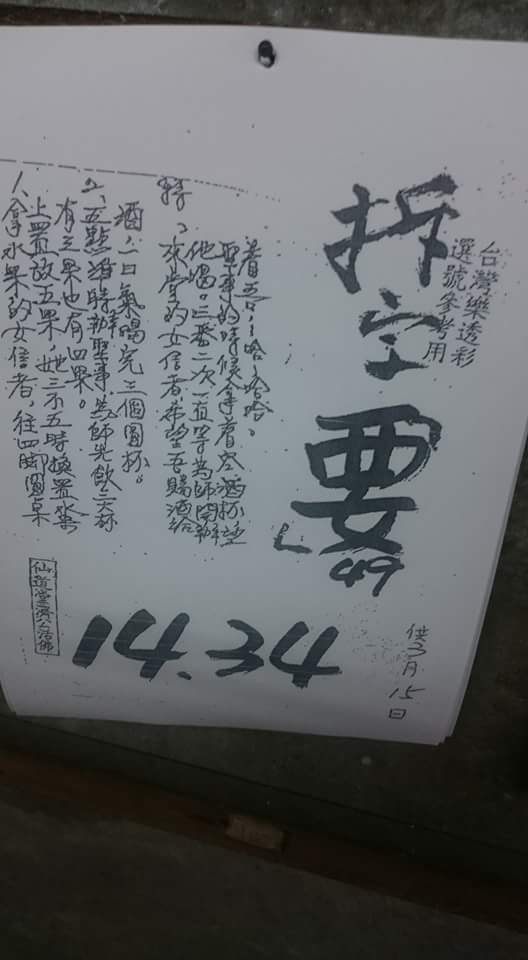 台灣樂透彩
選號參考用
拆字
要
49
供3月15日
14.34
仙道堂濟公活佛
1、拿水果的女信者,往四脚圓桌
上置放五果,她三不五時換置水
有三果也有四果。
2、五點準時辦聖事為師先飲三大杯
酒,一口氣喝完三個圓杯。
特、來堂的女信者希望吾賜酒給
他喝。三番二次一直等為師開辦
聖事的時候拿着空酒杯望
着吾~哈~哈哈。